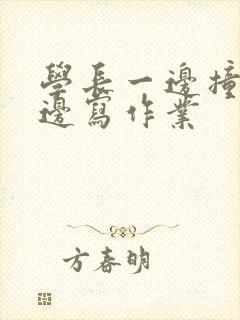 學長一邊撞
邊寫作業
方春明